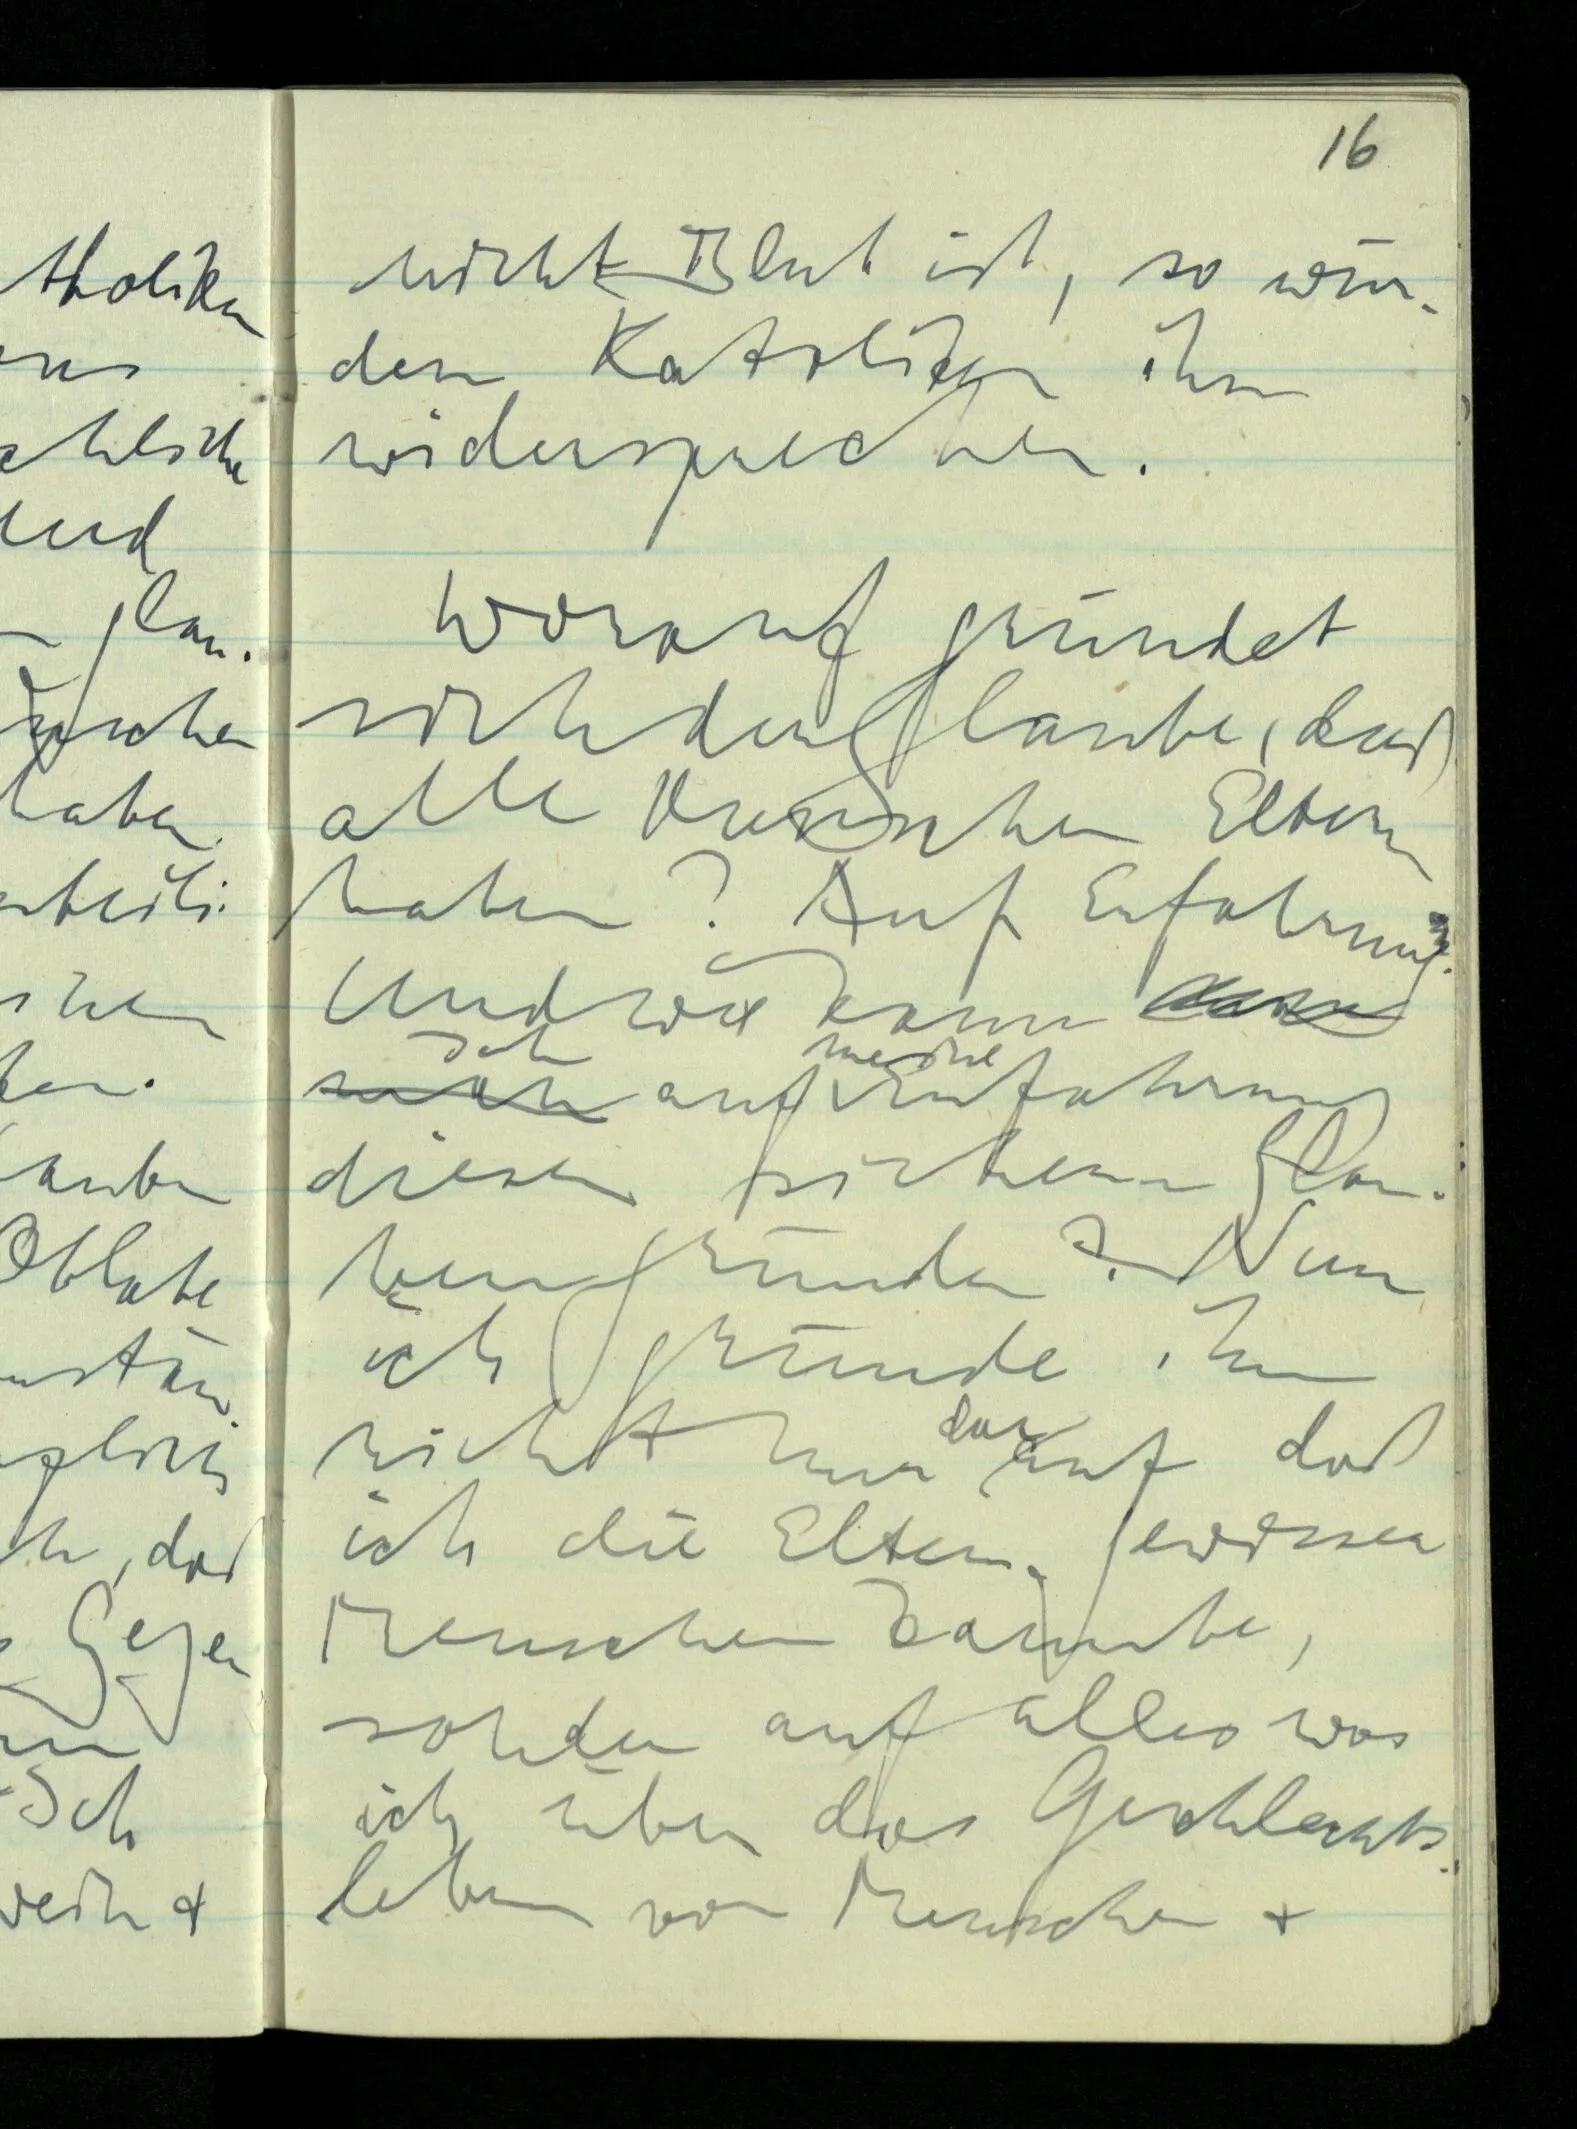 tholiken
sus
chliche
Und
glau-
nschen
haben
nteili-

ken.
lauben
Oblate
mstän
nzlich
ch, daß
Gegen
nn
Ich
Wein +
16
nicht Blut ist, so wür-
den Katoliken ihm
widersprechen.
Worauf gründet
sich der Glaube, daß
alle Menschen Eltern
haben? Auf Erfahrung.
Und wie kann
ich
auf meine Erfahrung
diesen sichern Glau-
ben gründen? Nun
ich gründe ihn
nicht nur darauf daß
ich die Eltern gewisser
Menschen kannte,
sondern auf alles was
ich über das Geschlechts-
leben von Menschen +